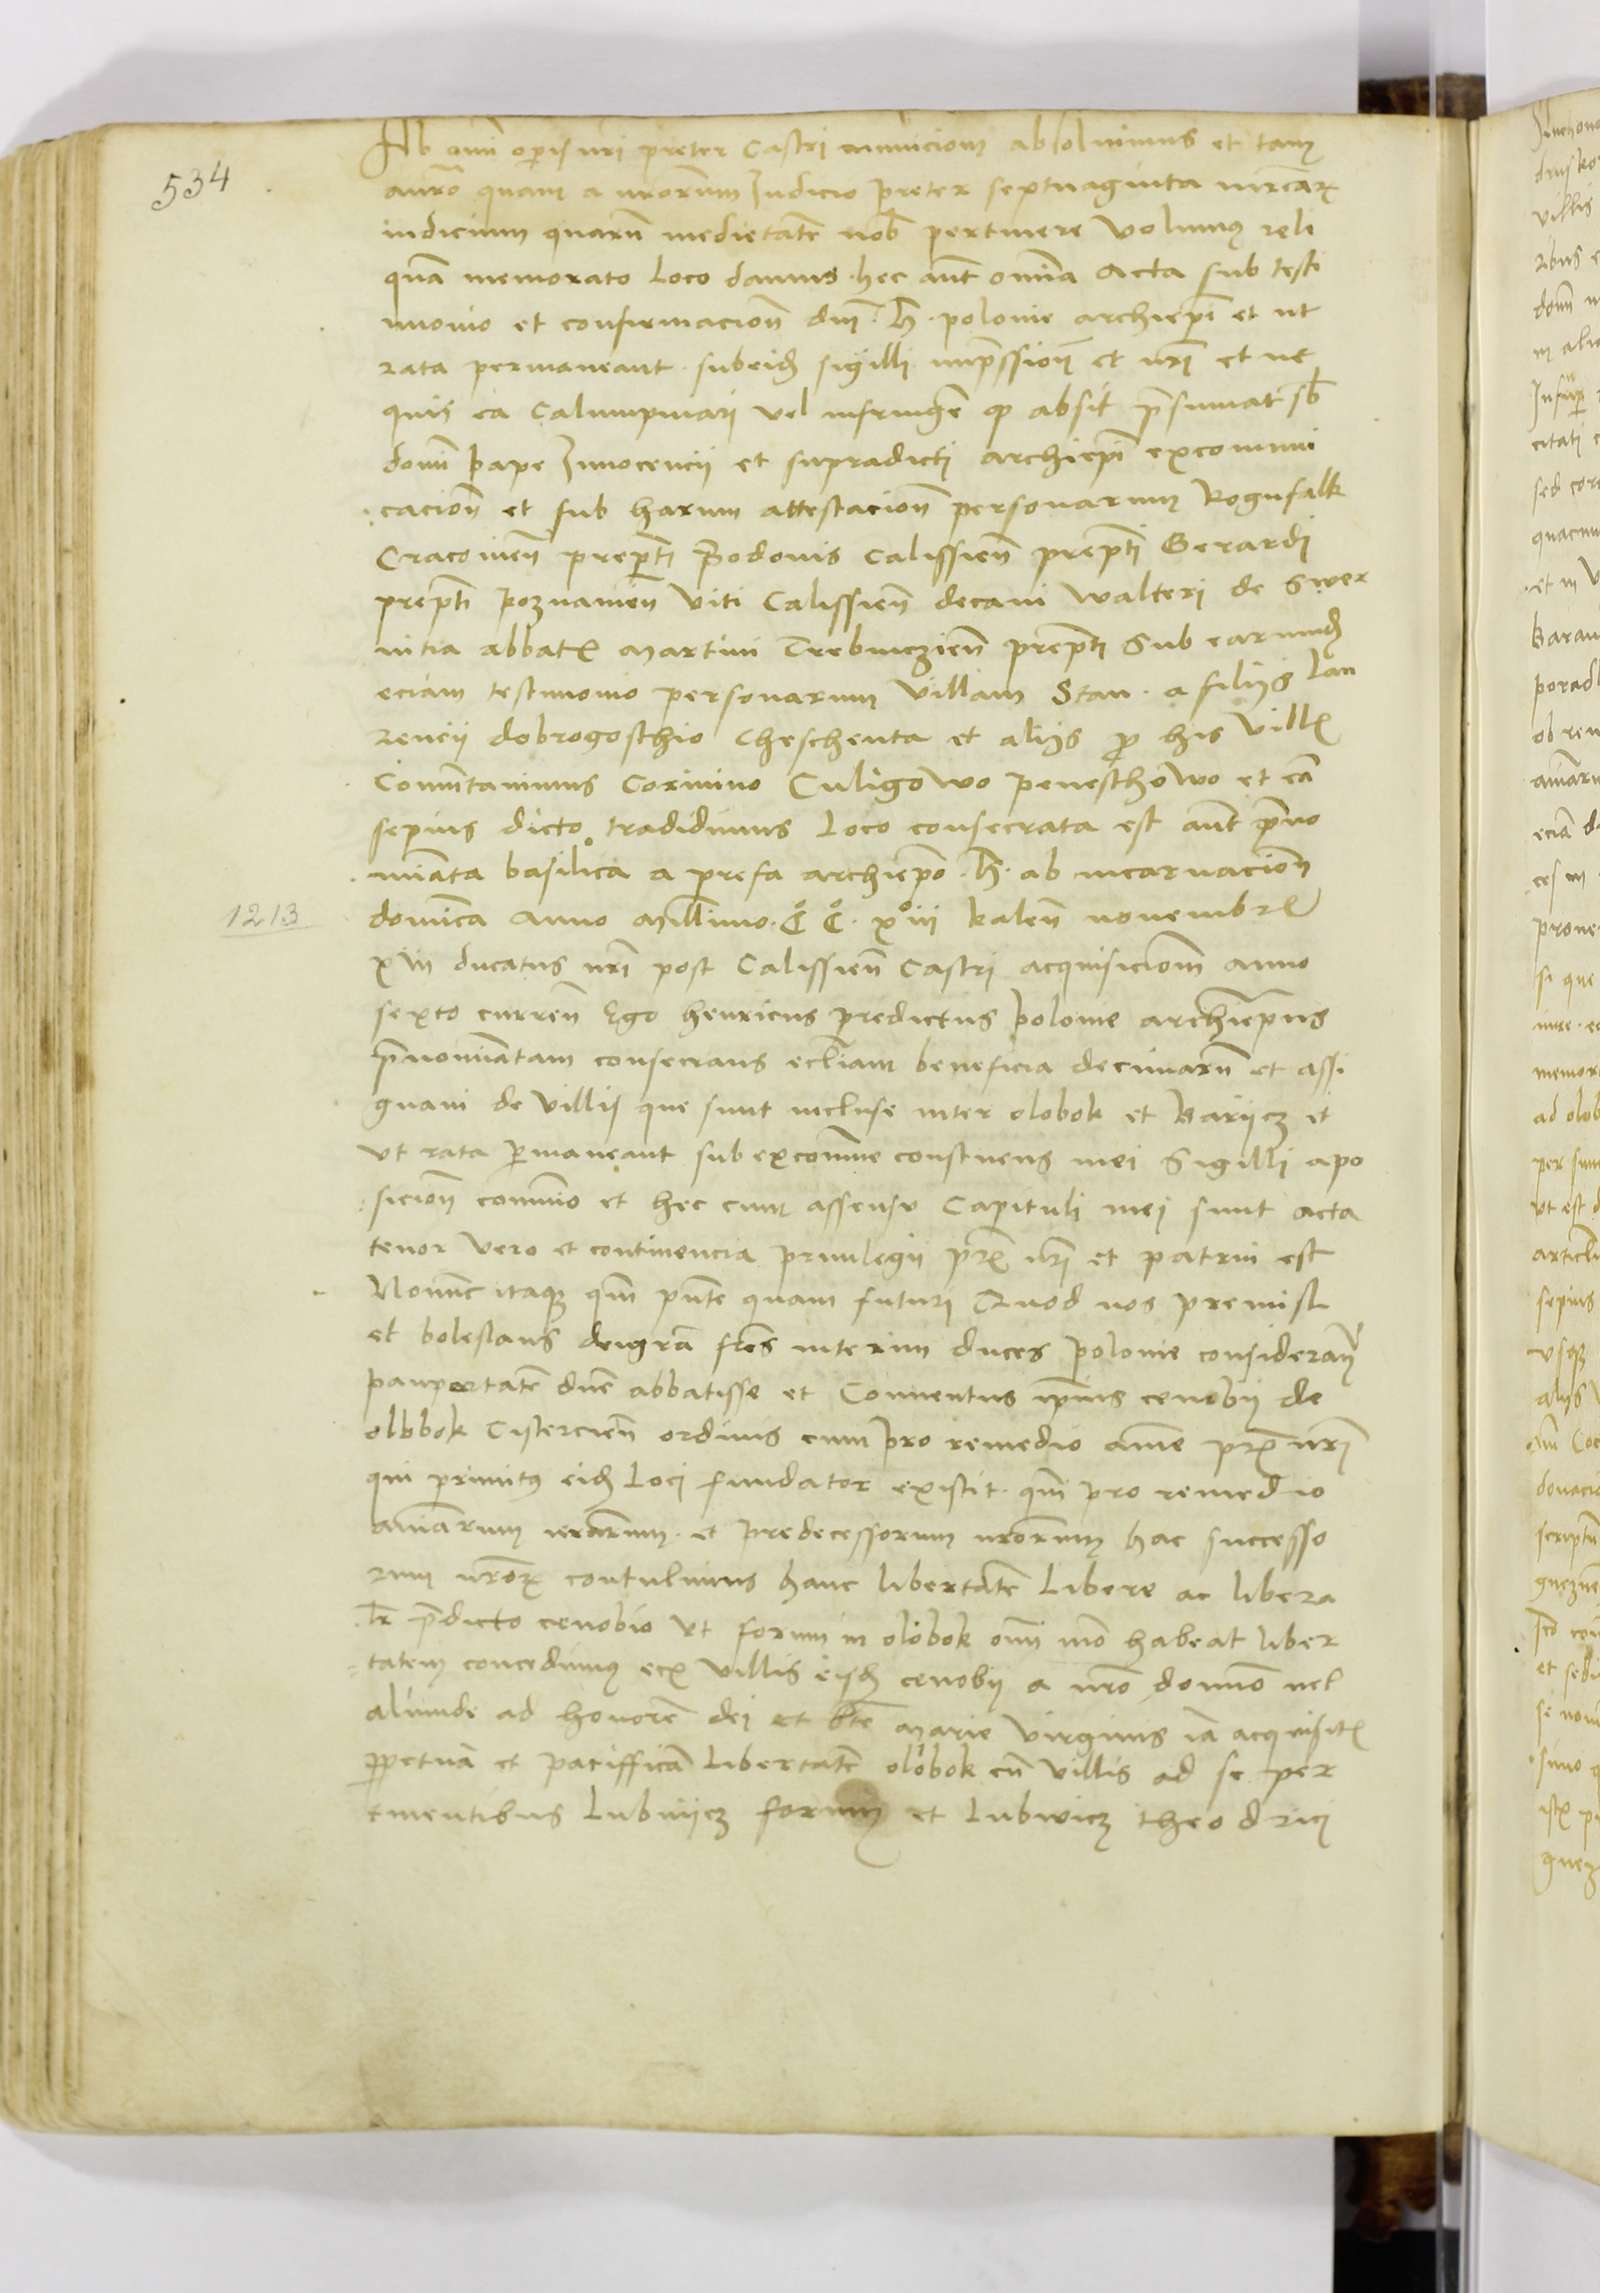 534
Ab omni operis uri preter Castri municiom absoluimus et tam
a nr̄o quam a nrorum Iudicio preter septuaginta mrcar
iudicium quarū medietatē nob pertinere volumus reli
quā memorato loco damus hec aūt omīa Acta sub testi
monio et confirmacionē dn̄i H polonie archiepī et ut
rata permaneant subeiusdē sigilli imp̄ssionē et nr̄i et ne
quis ea Calumpniari vel infringē qd absit p̄sumat sb
domī pape Innocencij et supradicti archiepī excommuni
cacionē et sub harum attestacionē personarum Rogufalk
Cracouienn̄ prep̄ti Bodonis Calissienn̄ prep̄ti Gerardi
prep̄ti poznanien Viti Calissienn̄ decani Walteri de Swer
nitia abbatis Martini Trebniczienn̄ prep̄ti Sub earundē
eciam testimonio personarum Villam Stan a filijs Lau
rencij dobrogosthio Cheschenta et alijs p his Villis
Commutauimus Corimino Culigowo penesthowo et eā
sepius dicto tradidimus loco consecrata est aūt p̄no
miāta basilica a prefa archiepō H ab incarnacionē
domīca Anno Millimo CC xiii kalenn̄ nouembris
1213
xiii ducatus nr̄i post Calissienn̄ Castri acquisiciom anno
sexto currenn̄ Ego henricus predictus polonie archiepus
p̄nomiatam consecrans eccliam beneficia decimarū et assi
gnaui de villis que sunt incluse inter olobok et Bariicz et
vt rata p̄maneant sub excomūe constuens mei Sigilli apo
sicionē commīo et hec cum assensu Capituli mei sunt acta
tenor vero et continencia priuilegii pr̄is nr̄i et patrui est
Nouīnt itaq qm̄ pn̄te quam futuri Quod nos premisl
et boleslaus deigrā frēs uterini duces polonie considerantes
paupertatē dnē abbatisse et Conuentus ipīus cenobij de
olobok Cistercienn̄ ordinis cum pro remedio aīme pr̄is nr̄i
qui primitus eiusdē loci fundator existit qm̄ pro remedio
animārum nrārum et predecessorum nrōrum hac successo
rum nrōr contulimus hanc libertatē libere ac libera
lr p̄dicto cenobio vt forum in olobok omī mō habeat liber
tatem concedimus ecz villis eiusdē cenobij a nrō domīo uel
aliunde ad honorē dei et btē Marie Virginis iā acquisitis
perpetuā et pacifficā libertatē olobok cū villis ad se per
tinentibus Lubniicz forum et Lubnicz theodrici